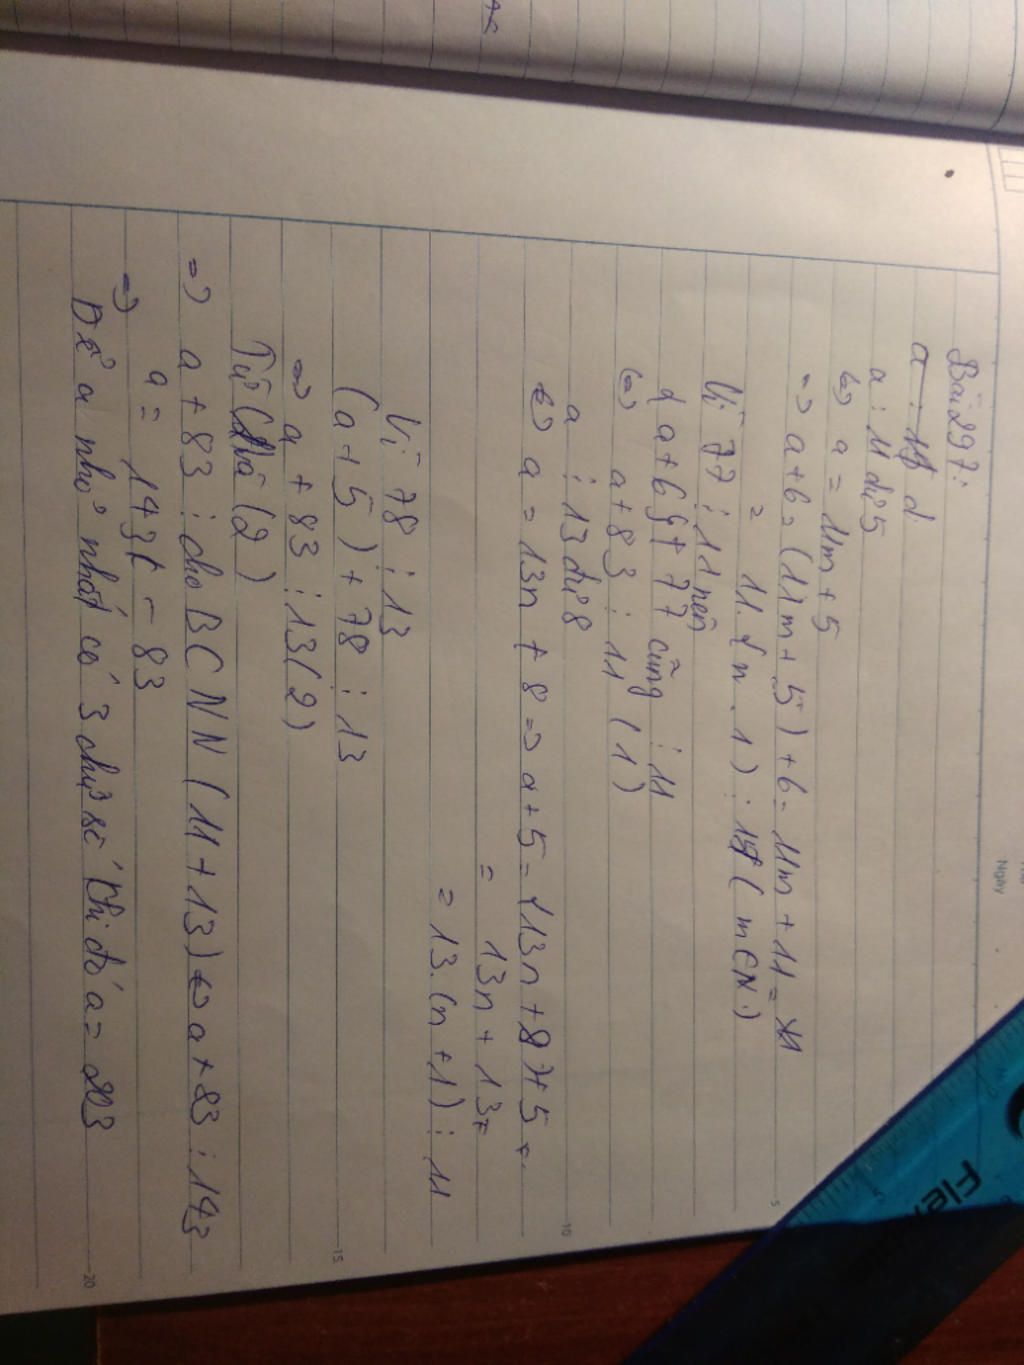 Bài 297:
a : 11 d
a : 11 dư 5
<=> a = 11m + 5
=> a + 6 = (11m + 5) + 6 = 11m + 11 =
= 11. (m . 1) : 11 ( m ∈ N.)
Vì 77 ⋮ 11 nên
(a + 6) + 77 cũng ⋮ 11
<=> a + 83 ⋮ 11 (1)
a : 13 dư 8
<=> a = 13n + 8 => a + 5 = (13n + 8) + 5 =
= 13n + 13 =
= 13. (n + 1) ⋮ 11
Vì 78 ⋮ 13
(a + 5) + 78 ⋮ 13
=> a + 83 ⋮ 13 (2)
Từ và (2)
=> a + 83 ⋮ cho BCNN (11 + 13) <=> a + 83 ⋮ 143
=> a = 143k - 83
Để a nhỏ nhất có 3 chữ số khi đó a = 203
Ngày
5
10
15
20
Fle
5